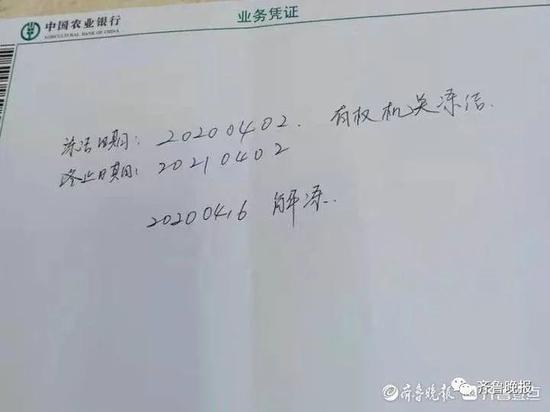 中国农业银行
AGRICULTURAL BANK OF CHINA
业务凭证
冻结日期: 20200402. 有权机关冻结.
终止日期: 20210402
20200416 解冻.
齐鲁晚报
齐鲁晚报